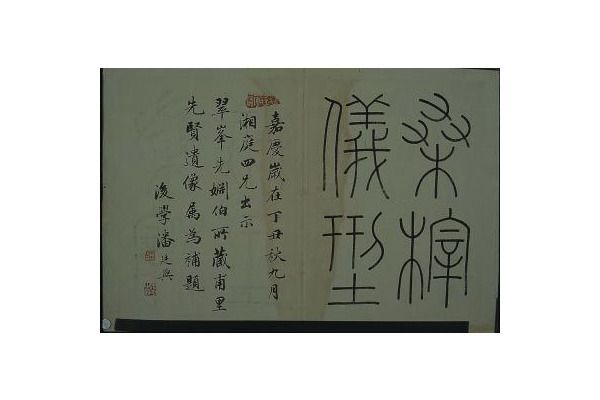 桑梓
儀型
嘉慶歲在丁丑秋九月
湘庭四兄出示
翠峯先姻伯所藏甫里
先賢遺像屬為補題
後學潘廷興